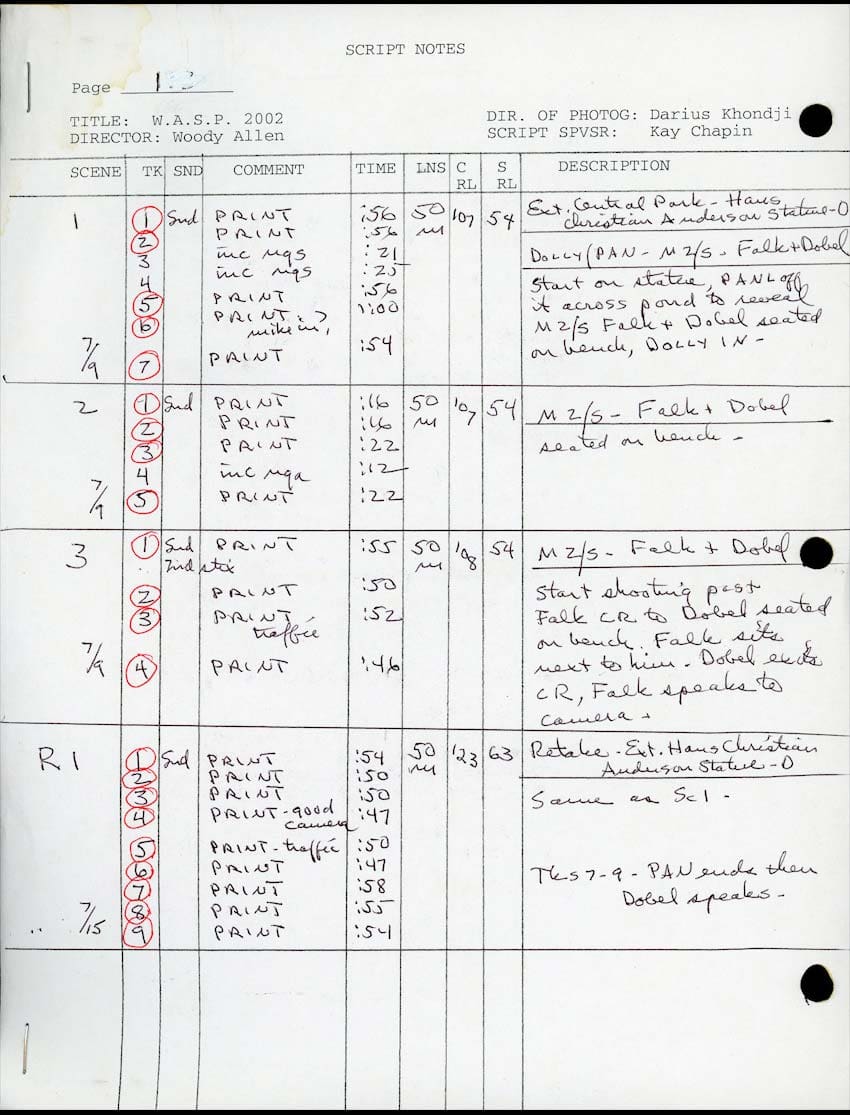 SCRIPT NOTES
Page
TITLE: W.A.S.P. 2002
DIRECTOR: Woody Allen
DIR. OF PHOTOG: Darius Khondji
SCRIPT SPVSR: Kay Chapin
SCENE TK SND COMMENT TIME LNS C RL S RL DESCRIPTION
1 1 Snd PRINT :56 50 107 54 Ext. Central Park - Hans
Christian Anderson Statue - D
2 PRINT :56
3 inc :21 DOLLY/PAN - M2/S - Falk + Dobel
4 inc :25 Start on statue, PAN L off
5 PRINT :56 it across pond to reveal
6 PRINT 1:00 M2/S Falk + Dobel seated
mike in, on bench, DOLLY IN -
7/9 7 PRINT :54
2 1 Snd PRINT :16 50 107 54 M2/S - Falk + Dobel
2 PRINT :16 seated on bench -
3 PRINT :22
4 inc :12
7/9 5 PRINT :22
3 1 Snd PRINT :55 50 108 54 M2/S - Falk + Dobel
2nd stix
2 PRINT :50 Start shooting past
3 PRINT :52 Falk CR to Dobel seated
traffic on bench. Falk sits
7/9 4 PRINT :46 next to him - Dobel exits
CR, Falk speaks to
camera -
R1 1 Snd PRINT :54 50 123 63 Retake - Ext. Hans Christian
2 PRINT :50 Anderson Statue - D
3 PRINT :50 Same as Sc 1 -
4 PRINT - good :47
camera
5 PRINT - traffic :50
6 PRINT :47 Tks 7-9 - PAN ends then
7 PRINT :58 Dobel speaks -
8 PRINT :55
7/15 9 PRINT :54